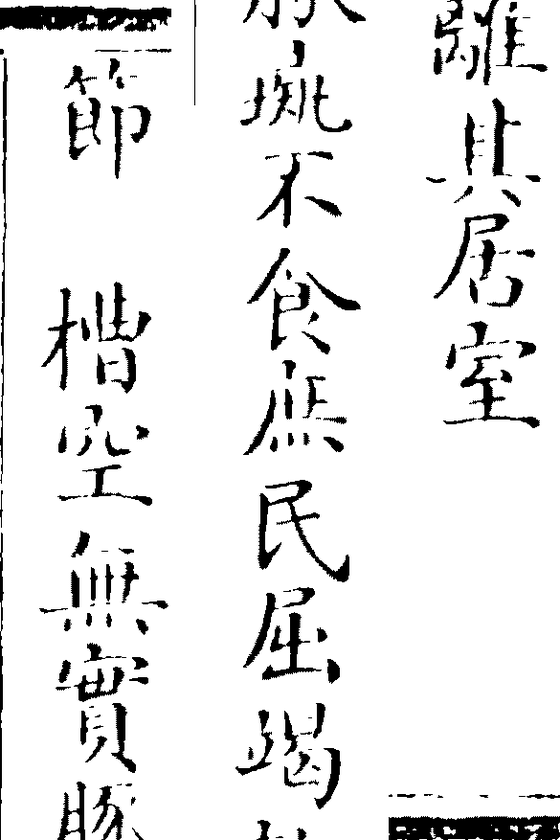 離其居室
彘不食庶民屈竭
節 槽空無實豚